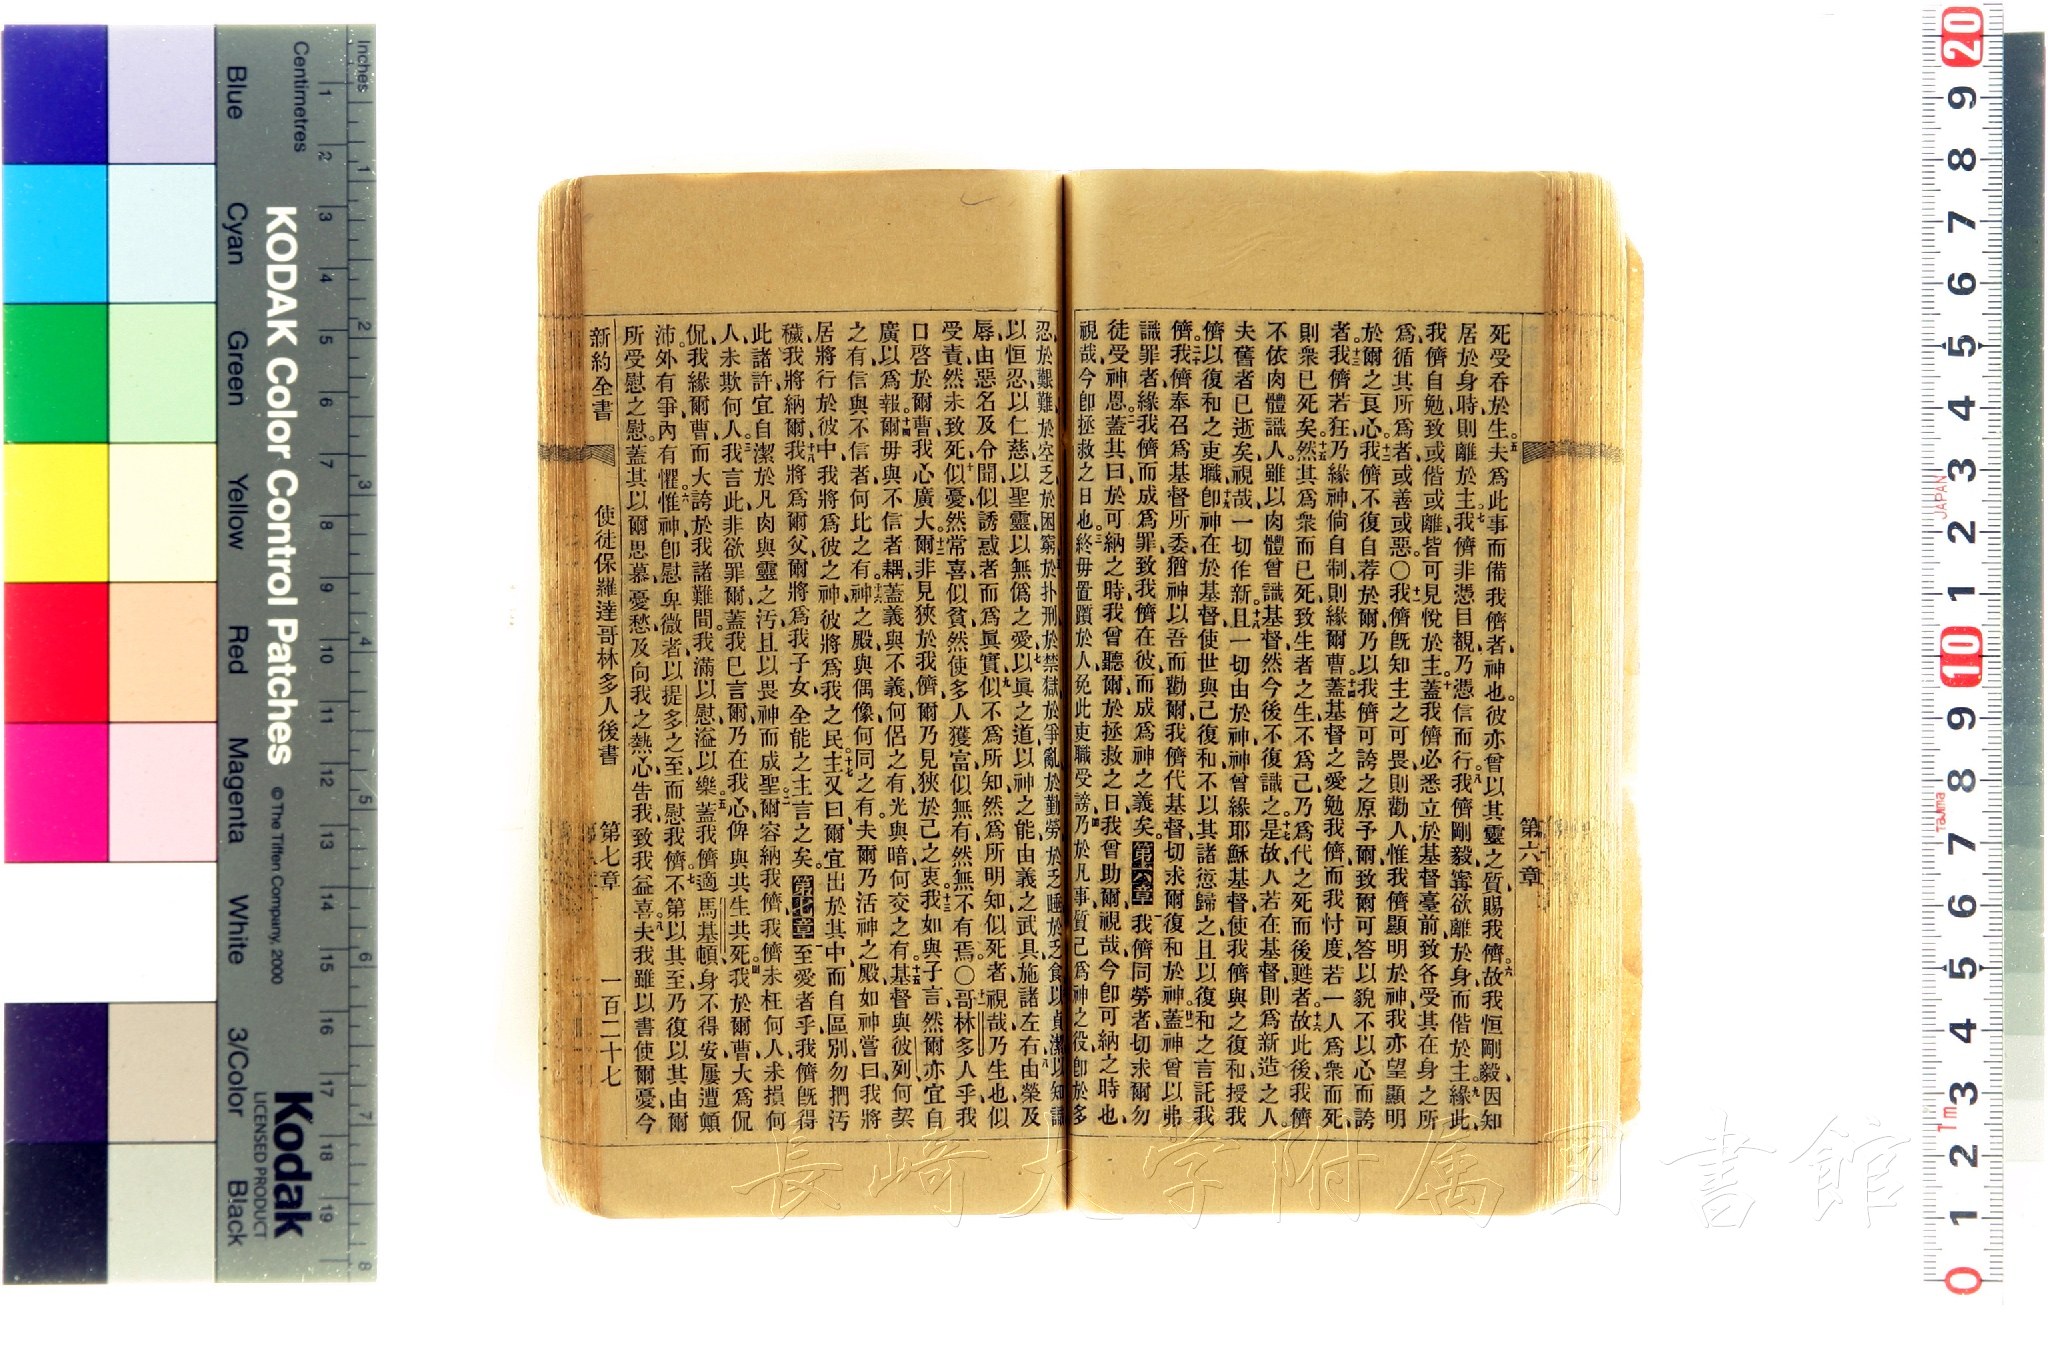 Inches
Centimetres
Blue Cyan Green Yellow Red Magenta White 3/Color Black
KODAK Color Control Patches © The Tiffen Company, 2000
Kodak
LICENSED PRODUCT
第六章
死受吞於生。五夫爲此事而備我儕者、神也。彼亦曾以其靈之質賜我儕。六故我恒剛毅、因知
居於身時、則離於主。七我儕非憑目覩、乃憑信而行。八我儕剛毅、寗欲離於身而偕於主。九緣此、
我儕自勉、致或偕或離、皆可見悅於主。十蓋我儕必悉立於基督臺前、致各受其在身之所
爲、循其所爲者、或善或惡。○十一我儕旣知主之可畏、則勸人、惟我儕顯明於神、我亦望顯明
於爾之良心。十二我儕不復自荐於爾、乃以我儕可誇之原予爾、致爾可答以貌不以心而誇
者。十三我儕若狂、乃緣神、倘自制、則緣爾曹。十四蓋基督之愛勉我儕、而我忖度、若一人爲衆而死、
則衆已死矣。十五然其爲衆而已死、致生者之生、不爲己、乃爲代之死而後甦者。十六故此後我儕
不依肉體識人、雖以肉體曾識基督、然今後不復識之。十七是故人若在基督、則爲新造之人、
夫舊者已逝矣、視哉、一切作新。十八且一切由於神、神曾緣耶穌基督、使我儕與之復和、授我
儕以復和之吏職。十九卽神在於基督、使世與己復和、不以其諸愆歸之、且以復和之言託我
儕。二十我儕奉召爲基督所委、猶神以吾而勸爾、我儕代基督切求爾復和於神。廿一蓋神曾以弗
識罪者、緣我儕而成爲罪、致我儕在彼而成爲神之義矣。第六章 一我儕同勞者、切求爾勿
徒受神恩。二蓋其曰、於可納之時、我曾聽爾、於拯救之日、我曾助爾、視哉、今卽可納之時也、
視哉、今卽拯救之日也。三終毋置躓於人、免此吏職受謗。四乃於凡事質己爲神之役、卽於多
忍、於艱難、於空乏、於困窮、五於扑刑、於禁獄、於爭亂、於勤勞、於乏睡、於乏食、六以貞潔、以知識、
以恒忍、以仁慈、以聖靈、以無僞之愛、七以眞之道、以神之能、由義之武具施諸左右、八由榮及
辱、由惡名及令聞、似誘惑者而爲眞實、九似不爲所知、然爲所明知、似死者、視哉乃生也、似
受責、然未致死、十似憂、然常喜、似貧、然使多人獲富、似無有、然無不有焉。○十一哥林多人乎、我
口啓於爾曹、我心廣大。十二爾非見狹於我儕、爾乃見狹於己之衷。十三我如與子言、然爾亦宜自
廣以爲報。十四爾毋與不信者耦、蓋義與不義何侶之有、光與暗何交之有、十五基督與彼列何契
之有、信與不信者何比之有、十六神之殿與偶像何同之有、夫爾乃活神之殿、如神嘗曰、我將
居、將行於彼中、我將爲彼之神、彼將爲我之民。十七主又曰、爾宜出於其中、而自區別、勿捫汚
穢、我將納爾。十八我將爲爾父、爾將爲我子女、全能之主言之矣。第七章 一至愛者乎、我儕旣得
此諸許、宜自潔於凡肉與靈之汚、且以畏神而成聖。二爾容納我儕、我儕未枉何人、未損何
人、未欺何人。三我言此、非欲罪爾、蓋我已言爾乃在我心、俾與共生共死。四我於爾曹大爲侃
侃、我緣爾曹而大誇、於我諸難間、我滿以慰、溢以樂。五蓋我儕適馬基頓、身不得安、屢遭顚
沛、外有爭、內有懼。六惟神卽慰卑微者、以提多之至而慰我儕。七不第以其至、乃復以其由爾
所受慰之慰、蓋其以爾思慕、憂愁、及向我之熱心告我、致我益喜。八夫我雖以書使爾憂、今
新約全書 使徒保羅達哥林多人後書 第七章 一百二十七
長崎大学附属図書館
JAPAN
Tajima
Tm